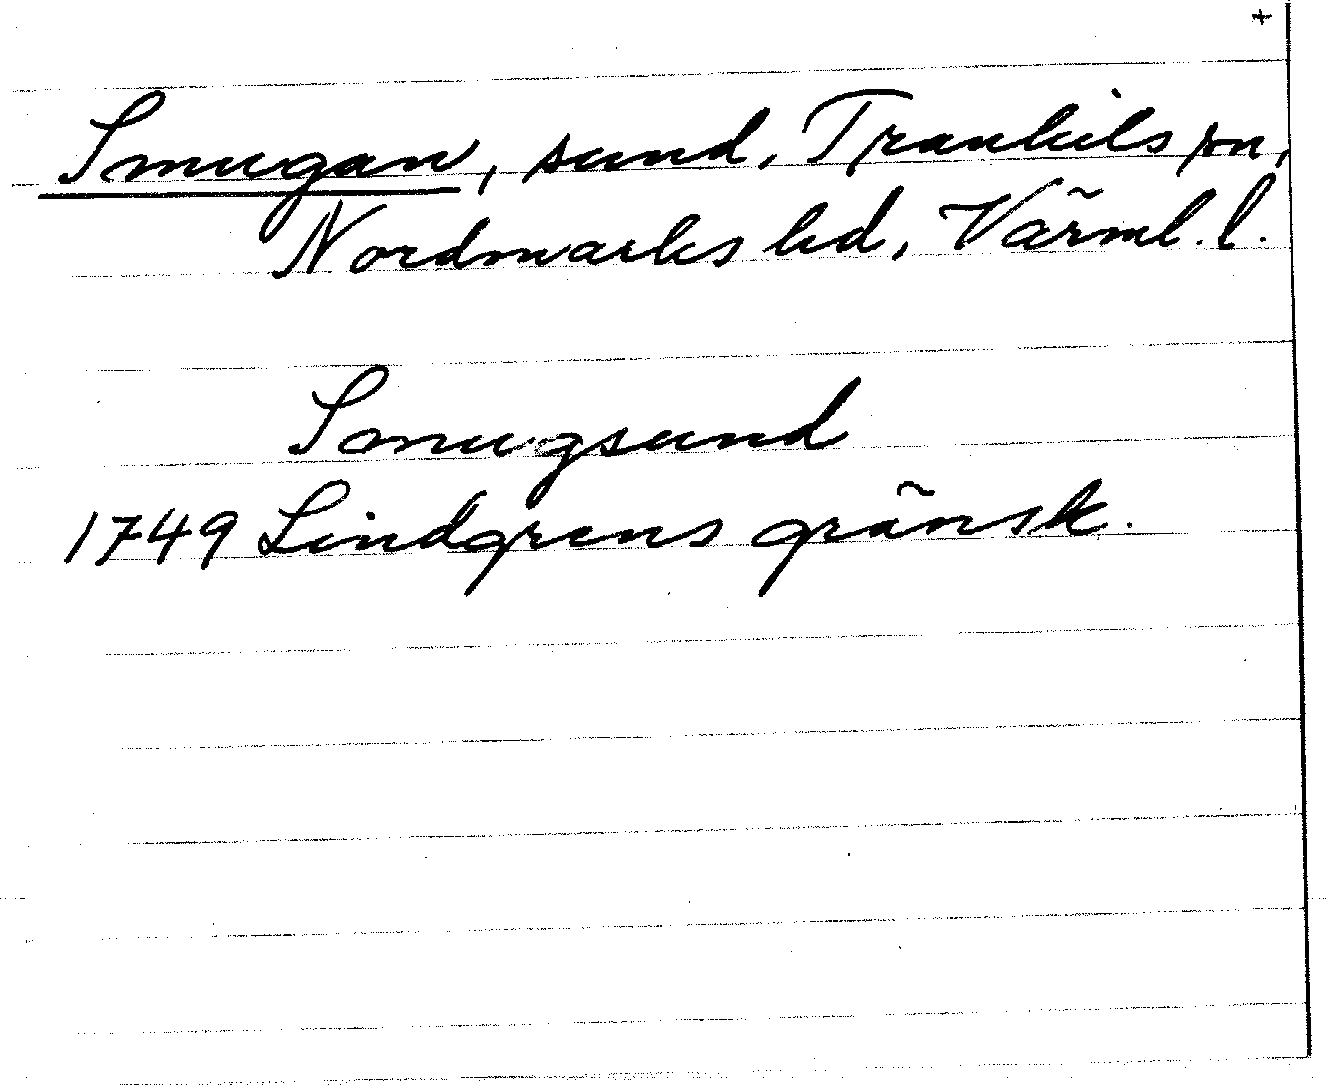 +
Smugan, sund, Trankils sn,
Nordmarks hd, Värml. l.
Smugsund
1749 Lindgrens gränsk.